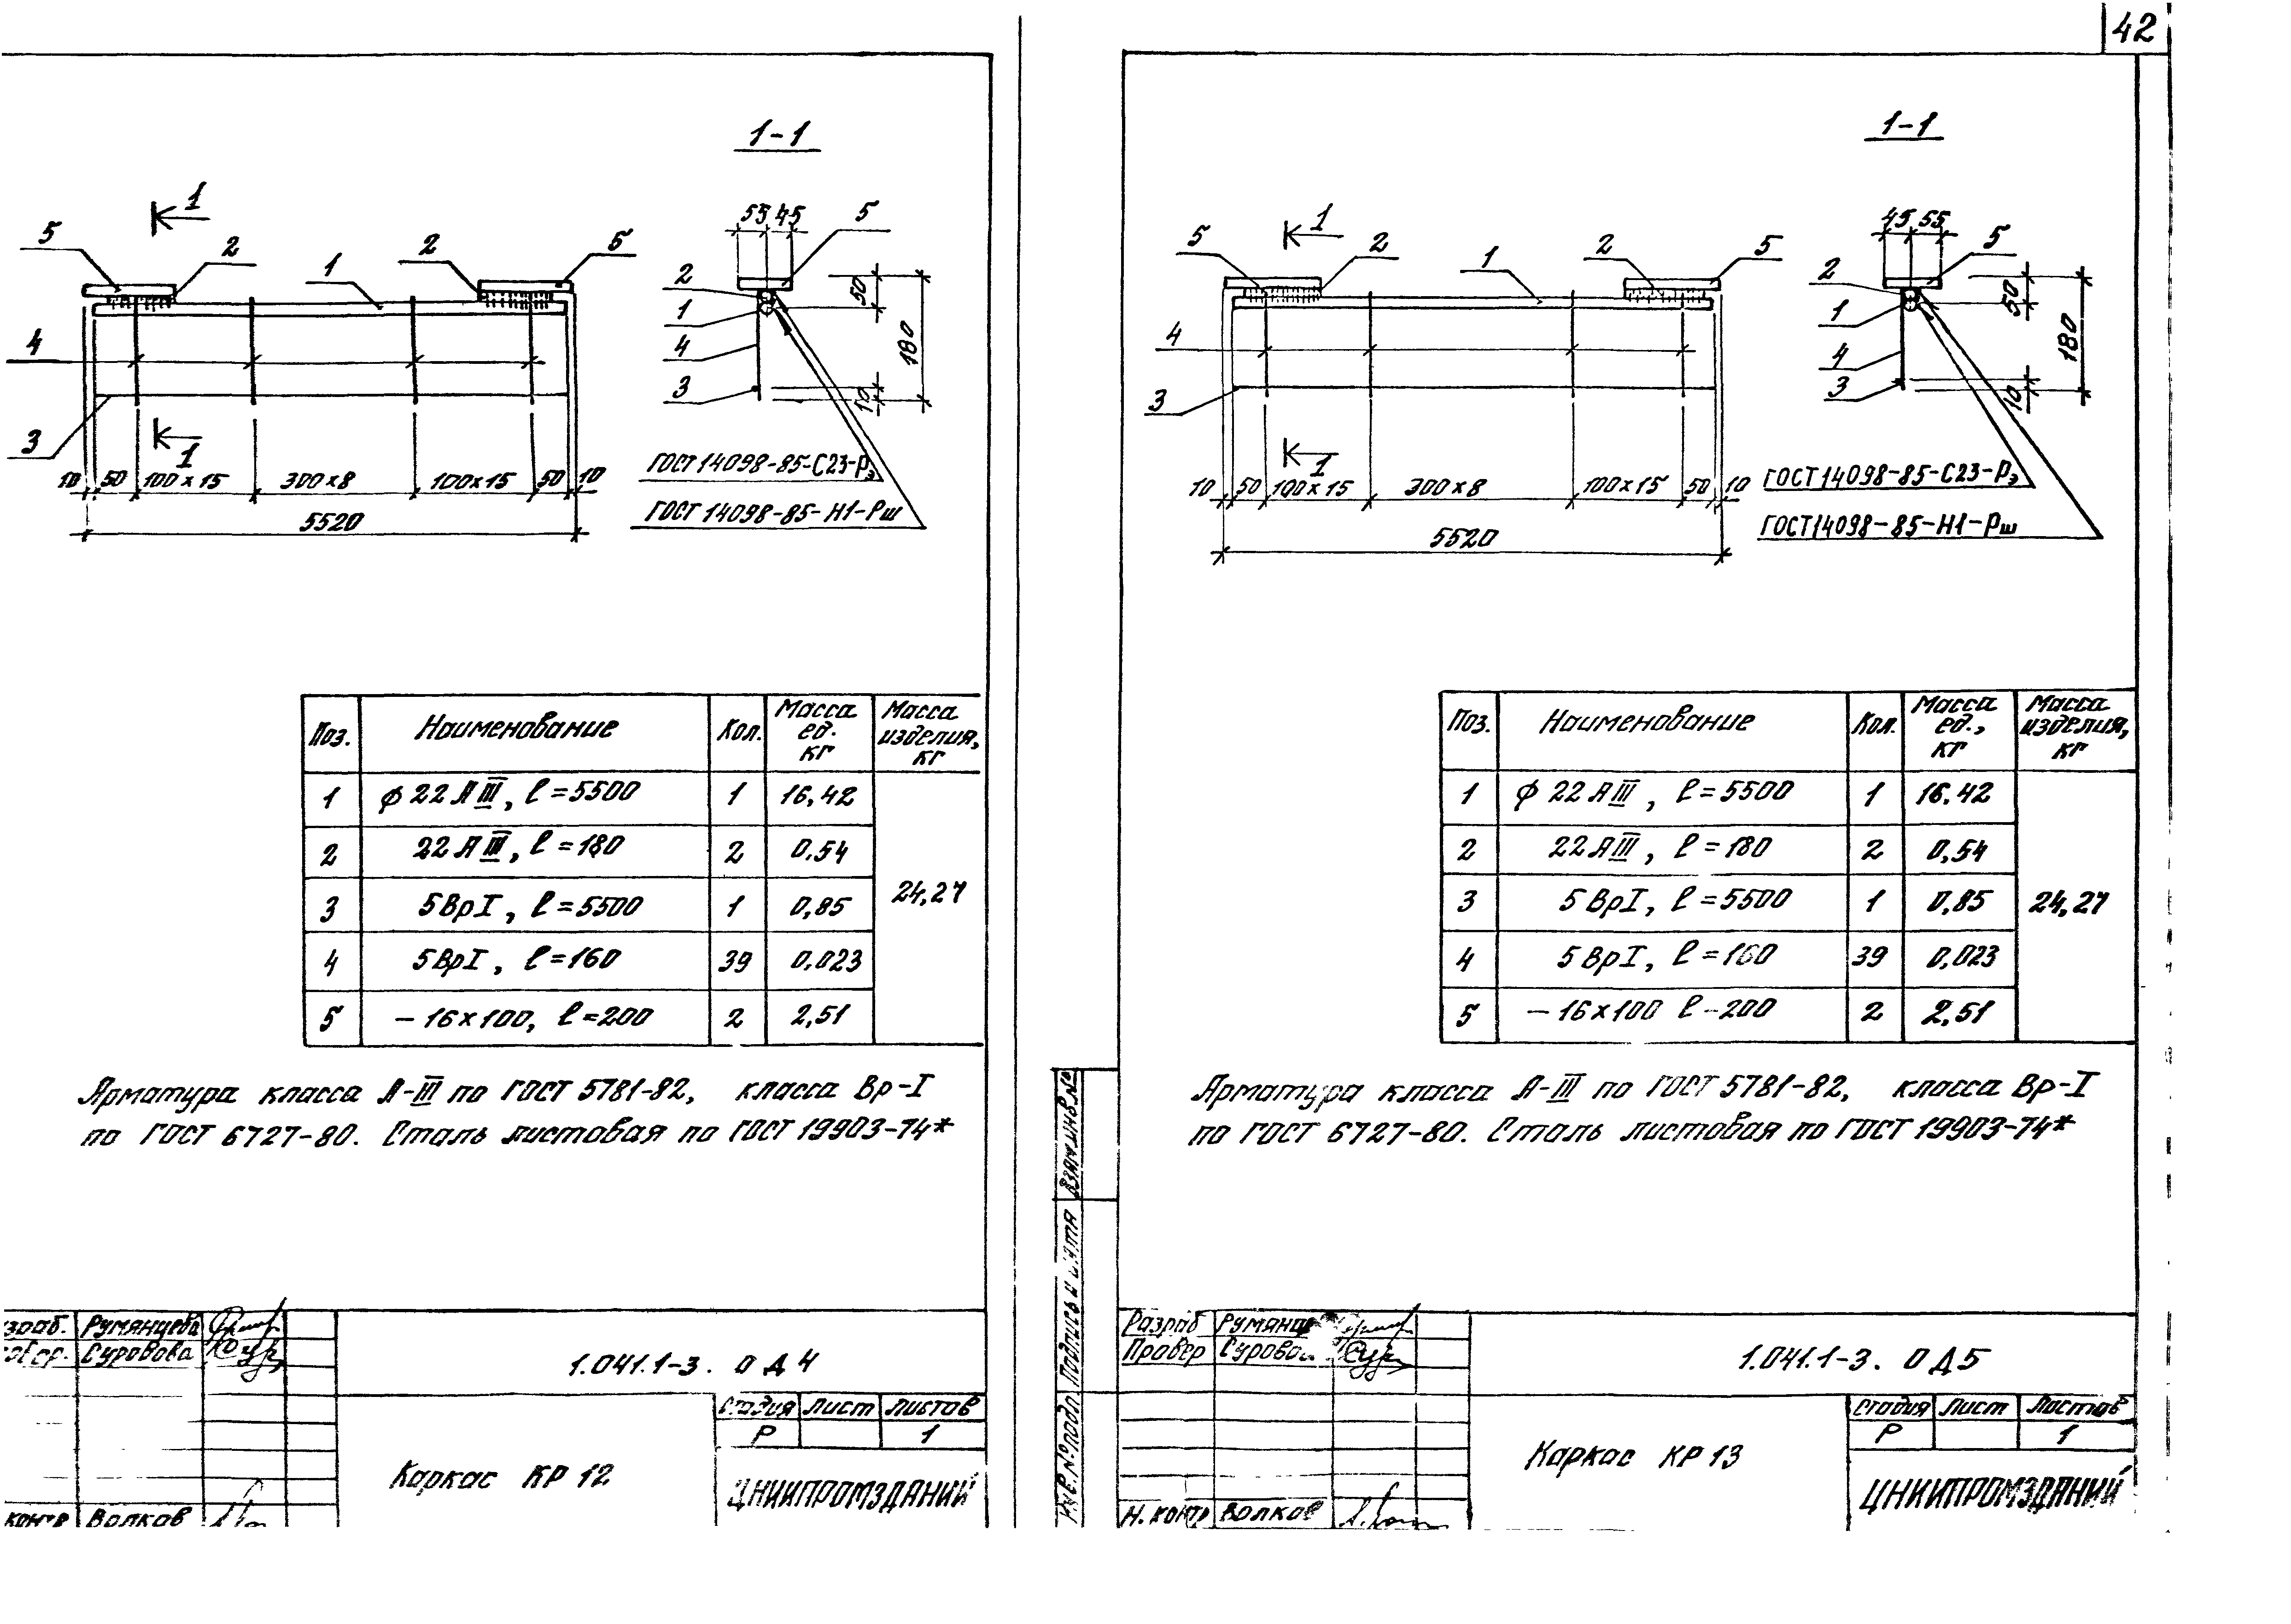 42
1-1
1
5
2
1
2
5
4
3
1
10 50 100×15 300×8 100×15 50 10
5520
55 45
5
2
1
4
3
50
180
10
ГОСТ 14098-85-С23-Рэ
ГОСТ 14098-85-Н1-Рш
Поз. Наименование Кол. Масса ед. кг Масса изделия, кг
1 ϕ 22 АIII, ℓ=5500 1 16,42
2 22 АIII, ℓ=180 2 0,54
3 5ВрI, ℓ=5500 1 0,85
24,27
4 5ВрI, ℓ=160 39 0,023
5 – 16×100, ℓ=200 2 2,51
Арматура класса А-III по ГОСТ 5781-82, класса Вр-I
по ГОСТ 6727-80. Сталь листовая по ГОСТ 19903-74*
Румянцева
Суровова
1.041.1-3. 0 Д4
Стадия Лист Листов
Р 1
Каркас КР 12
ЦНИИПРОМЗДАНИЙ
контр Волков
1-1
1
5
2
1
2
5
4
3
1
10 50 100×15 300×8 100×15 50 10
5520
45 55
5
2
1
4
3
50
180
10
ГОСТ 14098-85-С23-Рэ
ГОСТ 14098-85-Н1-Рш
Поз. Наименование Кол. Масса ед., кг Масса изделия, кг
1 ϕ 22 АIII, ℓ=5500 1 16.42
2 22 АIII, ℓ=180 2 0,54
3 5ВрI, ℓ=5500 1 0,85
24,27
4 5ВрI, ℓ=160 39 0,023
5 – 16×100 ℓ-200 2 2,51
Арматура класса А-III по ГОСТ 5781-82, класса Вр-I
по ГОСТ 6727-80. Сталь листовая по ГОСТ 19903-74*
Взам.инв.№
Подпись и дата
Инв.№подл.
Разраб
Провер
1.041.1-3. 0 Д5
Стадия Лист Листов
Р 1
Каркас КР 13
ЦНИИПРОМЗДАНИЙ
Н.контр Волков